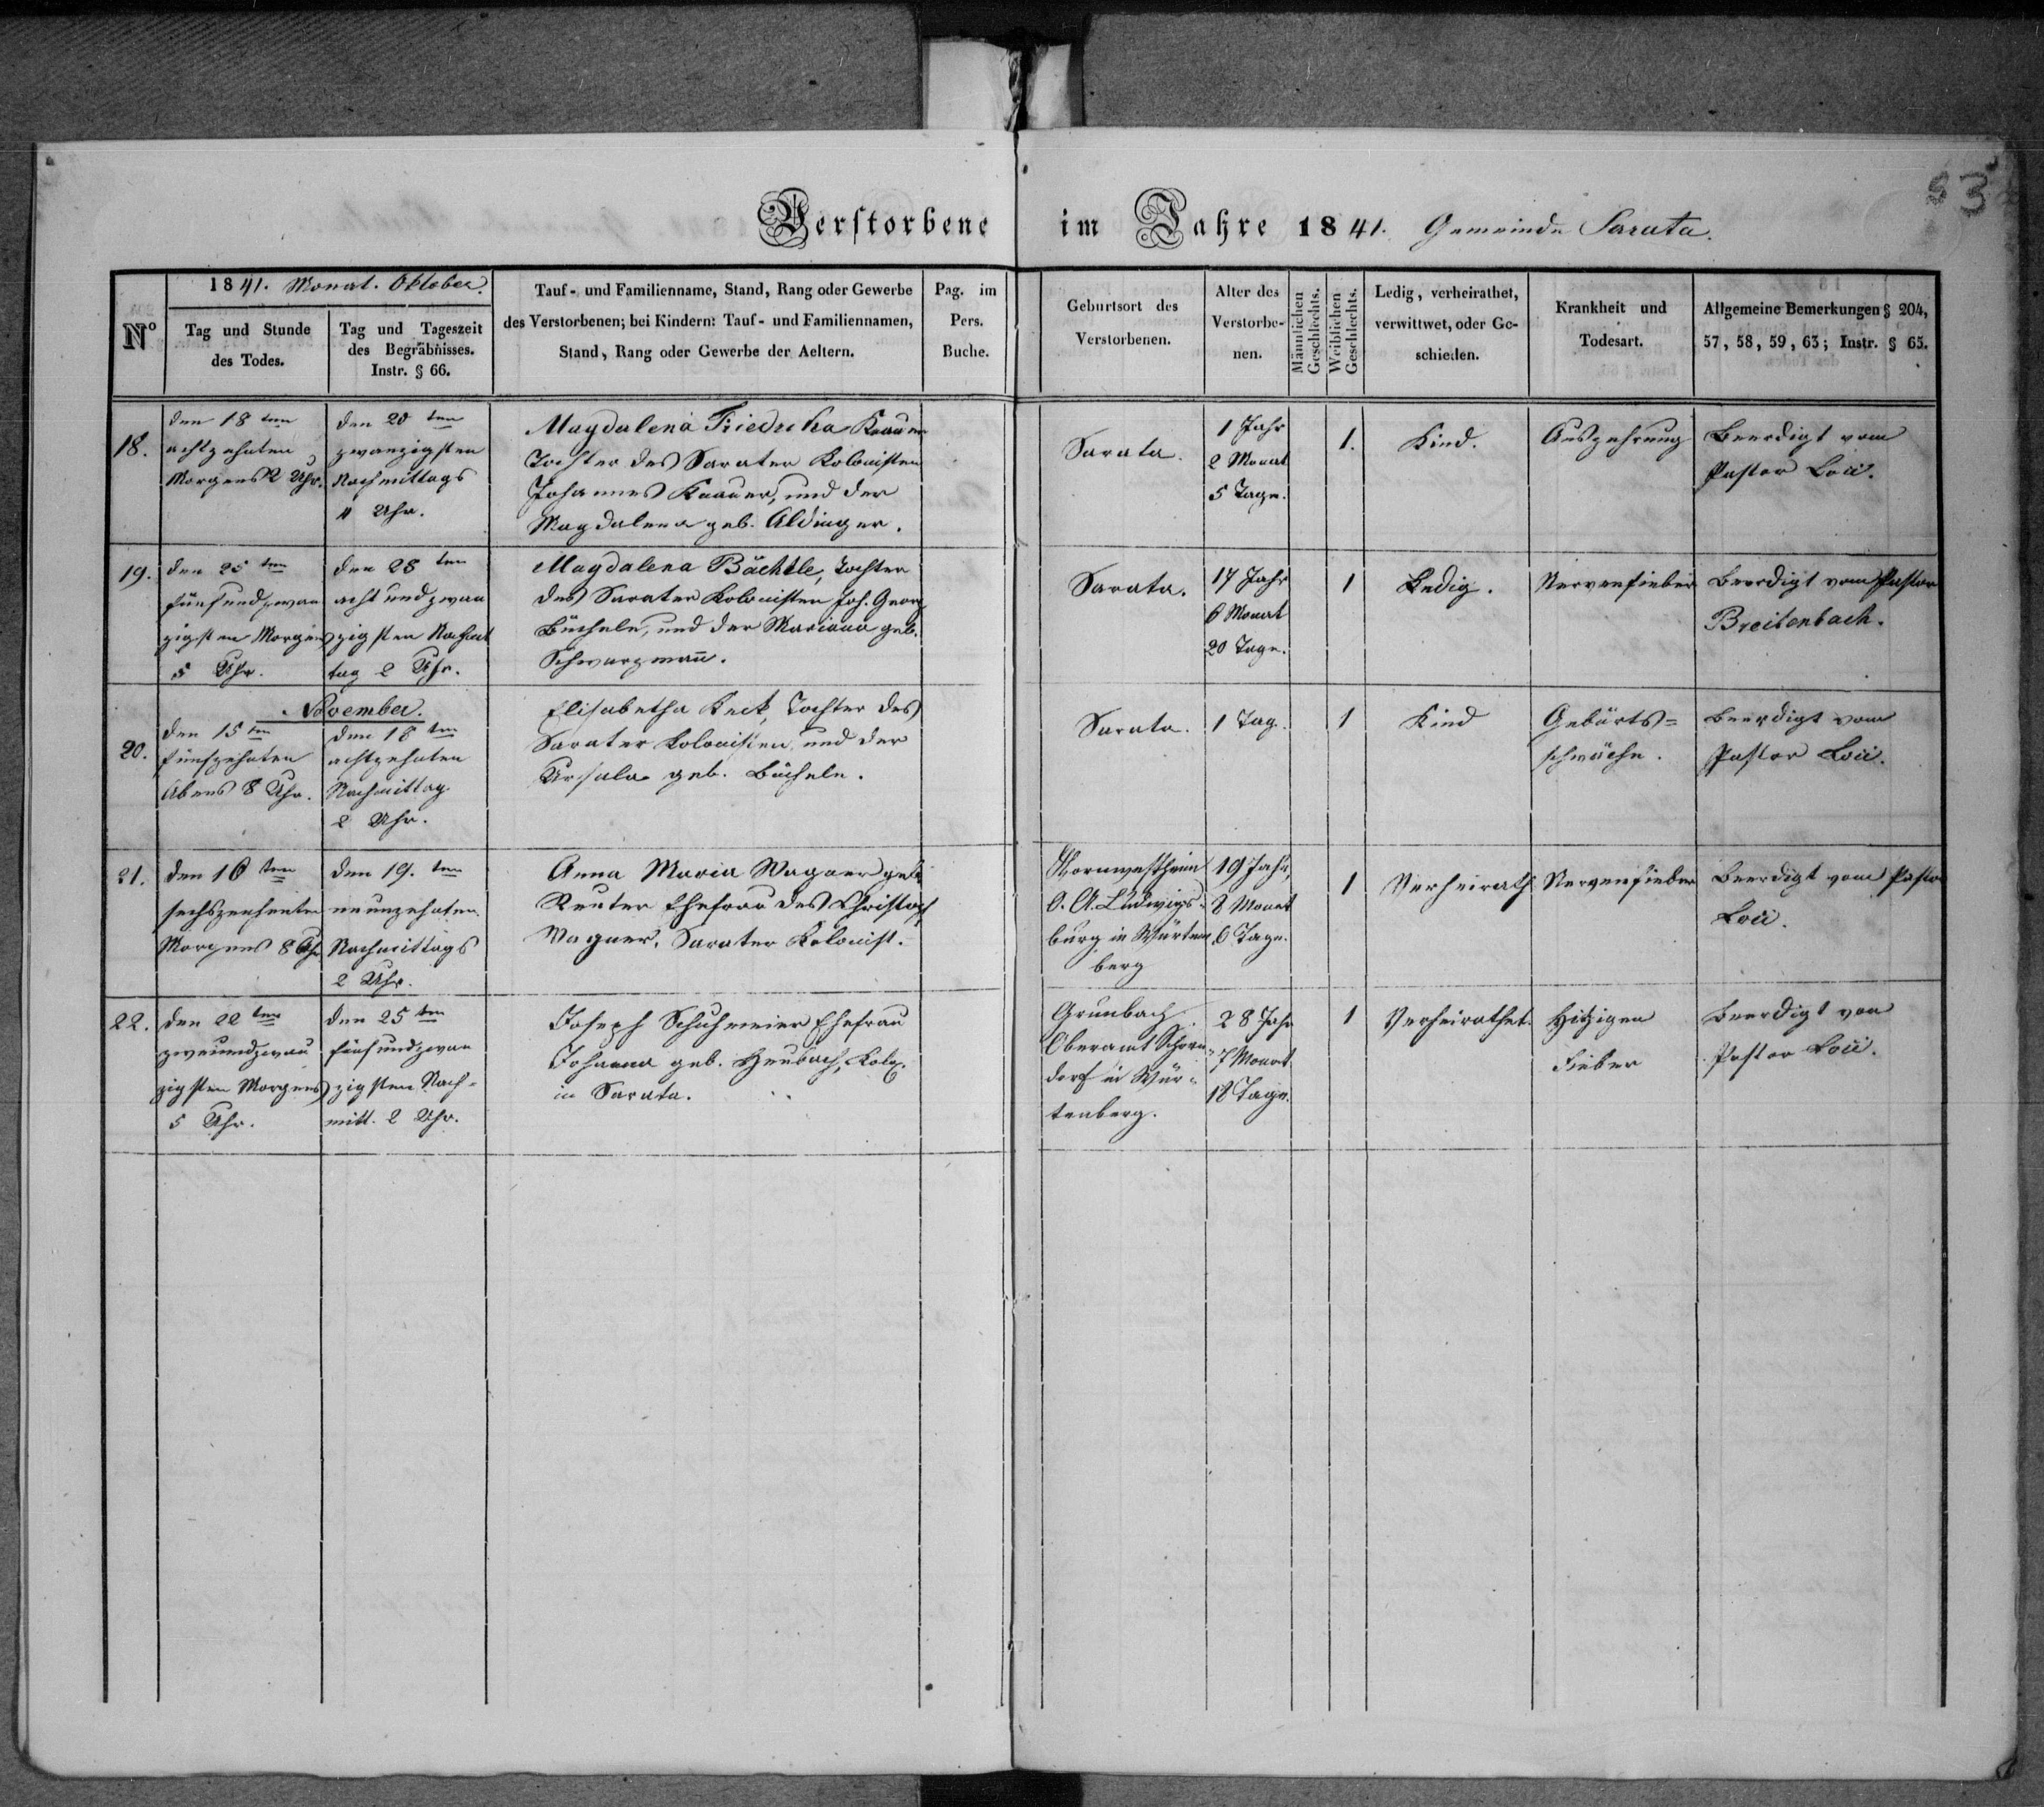 53
Verstorbene im Jahre 1841. Gemeinde Sarata.
1841. Monat. Oktober.
No
Tag und Stunde
des Todes.
Tag und Tageszeit
des Begräbnisses.
Instr. § 66.
Tauf- und Familienname, Stand, Rang oder Gewerbe
des Verstorbenen; bei Kindern: Tauf- und Familiennamen,
Stand, Rang oder Gewerbe der Aeltern.
Pag. im
Pers.
Buche.
Geburtsort des
Verstorbenen.
Alter des
Verstorbe-
nen.
Männlichen
Geschlechts.
Weiblichen
Geschlechts.
Ledig, verheirathet,
verwittwet, oder Ge-
schieden.
Krankheit und
Todesart.
Allgemeine Bemerkungen § 204,
57, 58, 59, 63; Instr. § 65.
18.
den 18ten
achtzehnten
Morgens 2 Uhr.
den 20ten
zwanzigsten
Nachmittags
4 Uhr.
Magdalena Friedrika Knauer
Tochter des Sarater Kolonisten
Johannes Knauer, und der
Magdalena geb. Aldinger.
Sarata.
1 Jahr
2 Monat
5 Tage.
1.
Kind.
Auszehrung
Beerdigt vom
Pastor
19.
den 25ten
fünfundzwan
zigsten Morgens
5 Uhr.
den 28ten
acht und zwan
zigsten Nachmit
tag 2 Uhr.
Magdalena Bächtle, Tochter
des Sarater Kolonisten Joh. Georg
und der Mariana geb.
Schwarzmañ.
Sarata.
17 Jahr
6 Monat
20 Tage.
1
Ledig.
Nervenfieber
Beerdigt vom Pastor
Breitenbach.
November.
20.
den 15ten
fünfzehnten
Abens 8 Uhr.
den 18ten
achtzehnten
Nachmittag
2 Uhr.
Elisabetha Keck, Tochter des
Sarater Kolonisten, und der
Ursula geb.
Sarata.
1 Tag.
1
Kind
Geburts=
schwäche.
Beerdigt vom
Pastor
21.
den 16ten
Morgens 8 Uhr
den 19.ten
neunzehnten
Nachmittags
2 Uhr.
Anna Maria Wagner geb.
Reuter Ehefrau des Christoph
Wagner, Sarater Kolonist.
Kornwestheim
O. A. Ludwigs-
burg in Würtem
berg
19 Jahr,
8 Monat
6 Tage.
1
Verheirath
Nervenfieber
Beerdigt vom Pastor
22.
den 22ten
zweiundzwan
zigsten Morgens
5 Uhr.
den 25ten
fünfundzwan
zigsten Nach-
mitt. 2 Uhr.
Joseph Schuhmeier Ehefrau
Johanna geb. Heubach,
in Sarata.
Grunbach.
Oberamt Schorn-
dorf in Wür-
tenberg.
28 Jahr
7 Monat
18 Tage.
1
Verheirathet.
Hitzigen
Fieber
Beerdigt von
Pastor